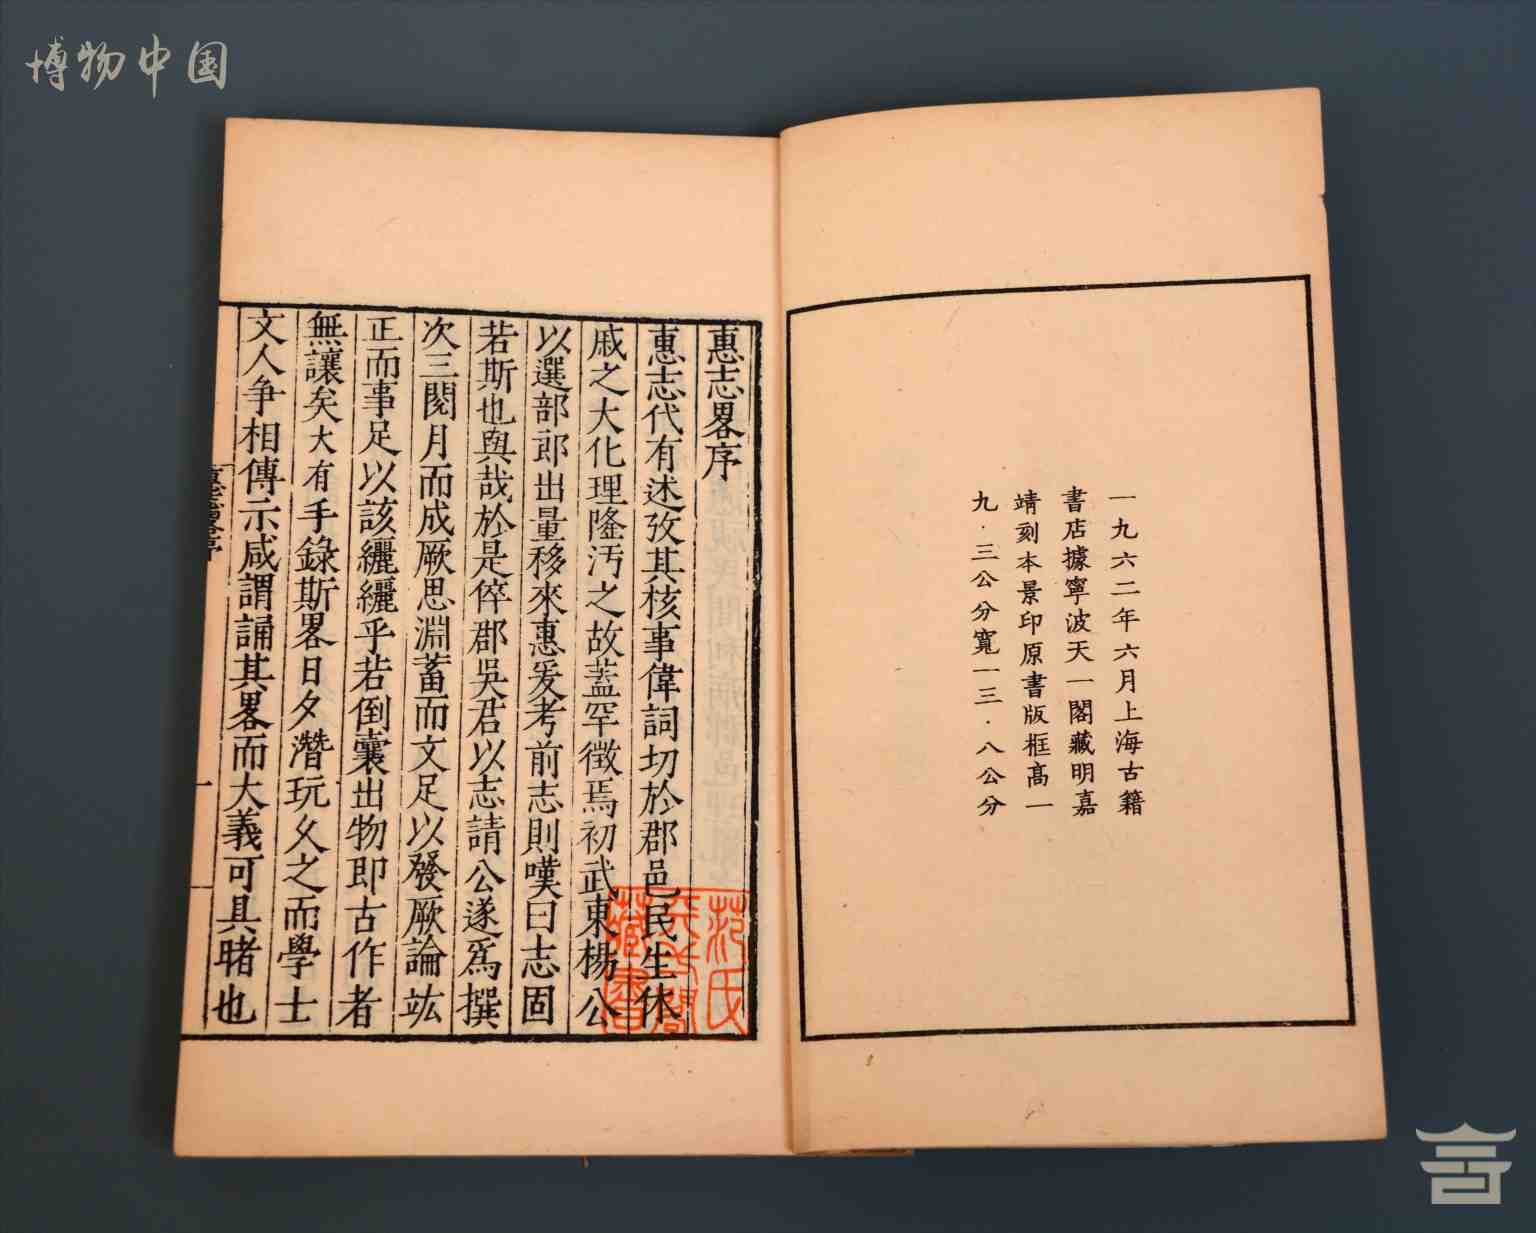 博物中国
一九六二年六月上海古籍
書店據寧波天一閣藏明嘉
靖刻本景印原書版框高一
九·三公分寬一三·八公分
惠志畧序
惠志代有述攷其核事偉詞切於郡邑民生休
戚之大化理隆汚之故蓋罕徵焉初武東楊公
以選部郎出量移來惠爰考前志則嘆曰志固
若斯也與哉於是倅郡吳君以志請公遂爲撰
次三閱月而成厥思淵蓄而文足以發厥論竑
正而事足以該纚纚乎若倒囊出物即古作者
無讓矣大有手錄斯畧日夕潛玩久之而學士
文人争相傳示咸謂誦其畧而大義可具睹也
惠志畧序
一
范氏
天一閣
藏書